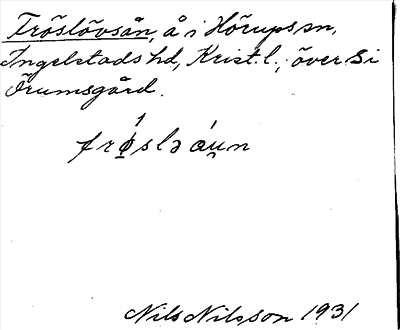 Tröslövsån, å i Hörups sn,
Ingelstads hd, Krist. l.; över Si
Örumsgård.
frø̀slə áu̯n
Nils Nilsson 1931